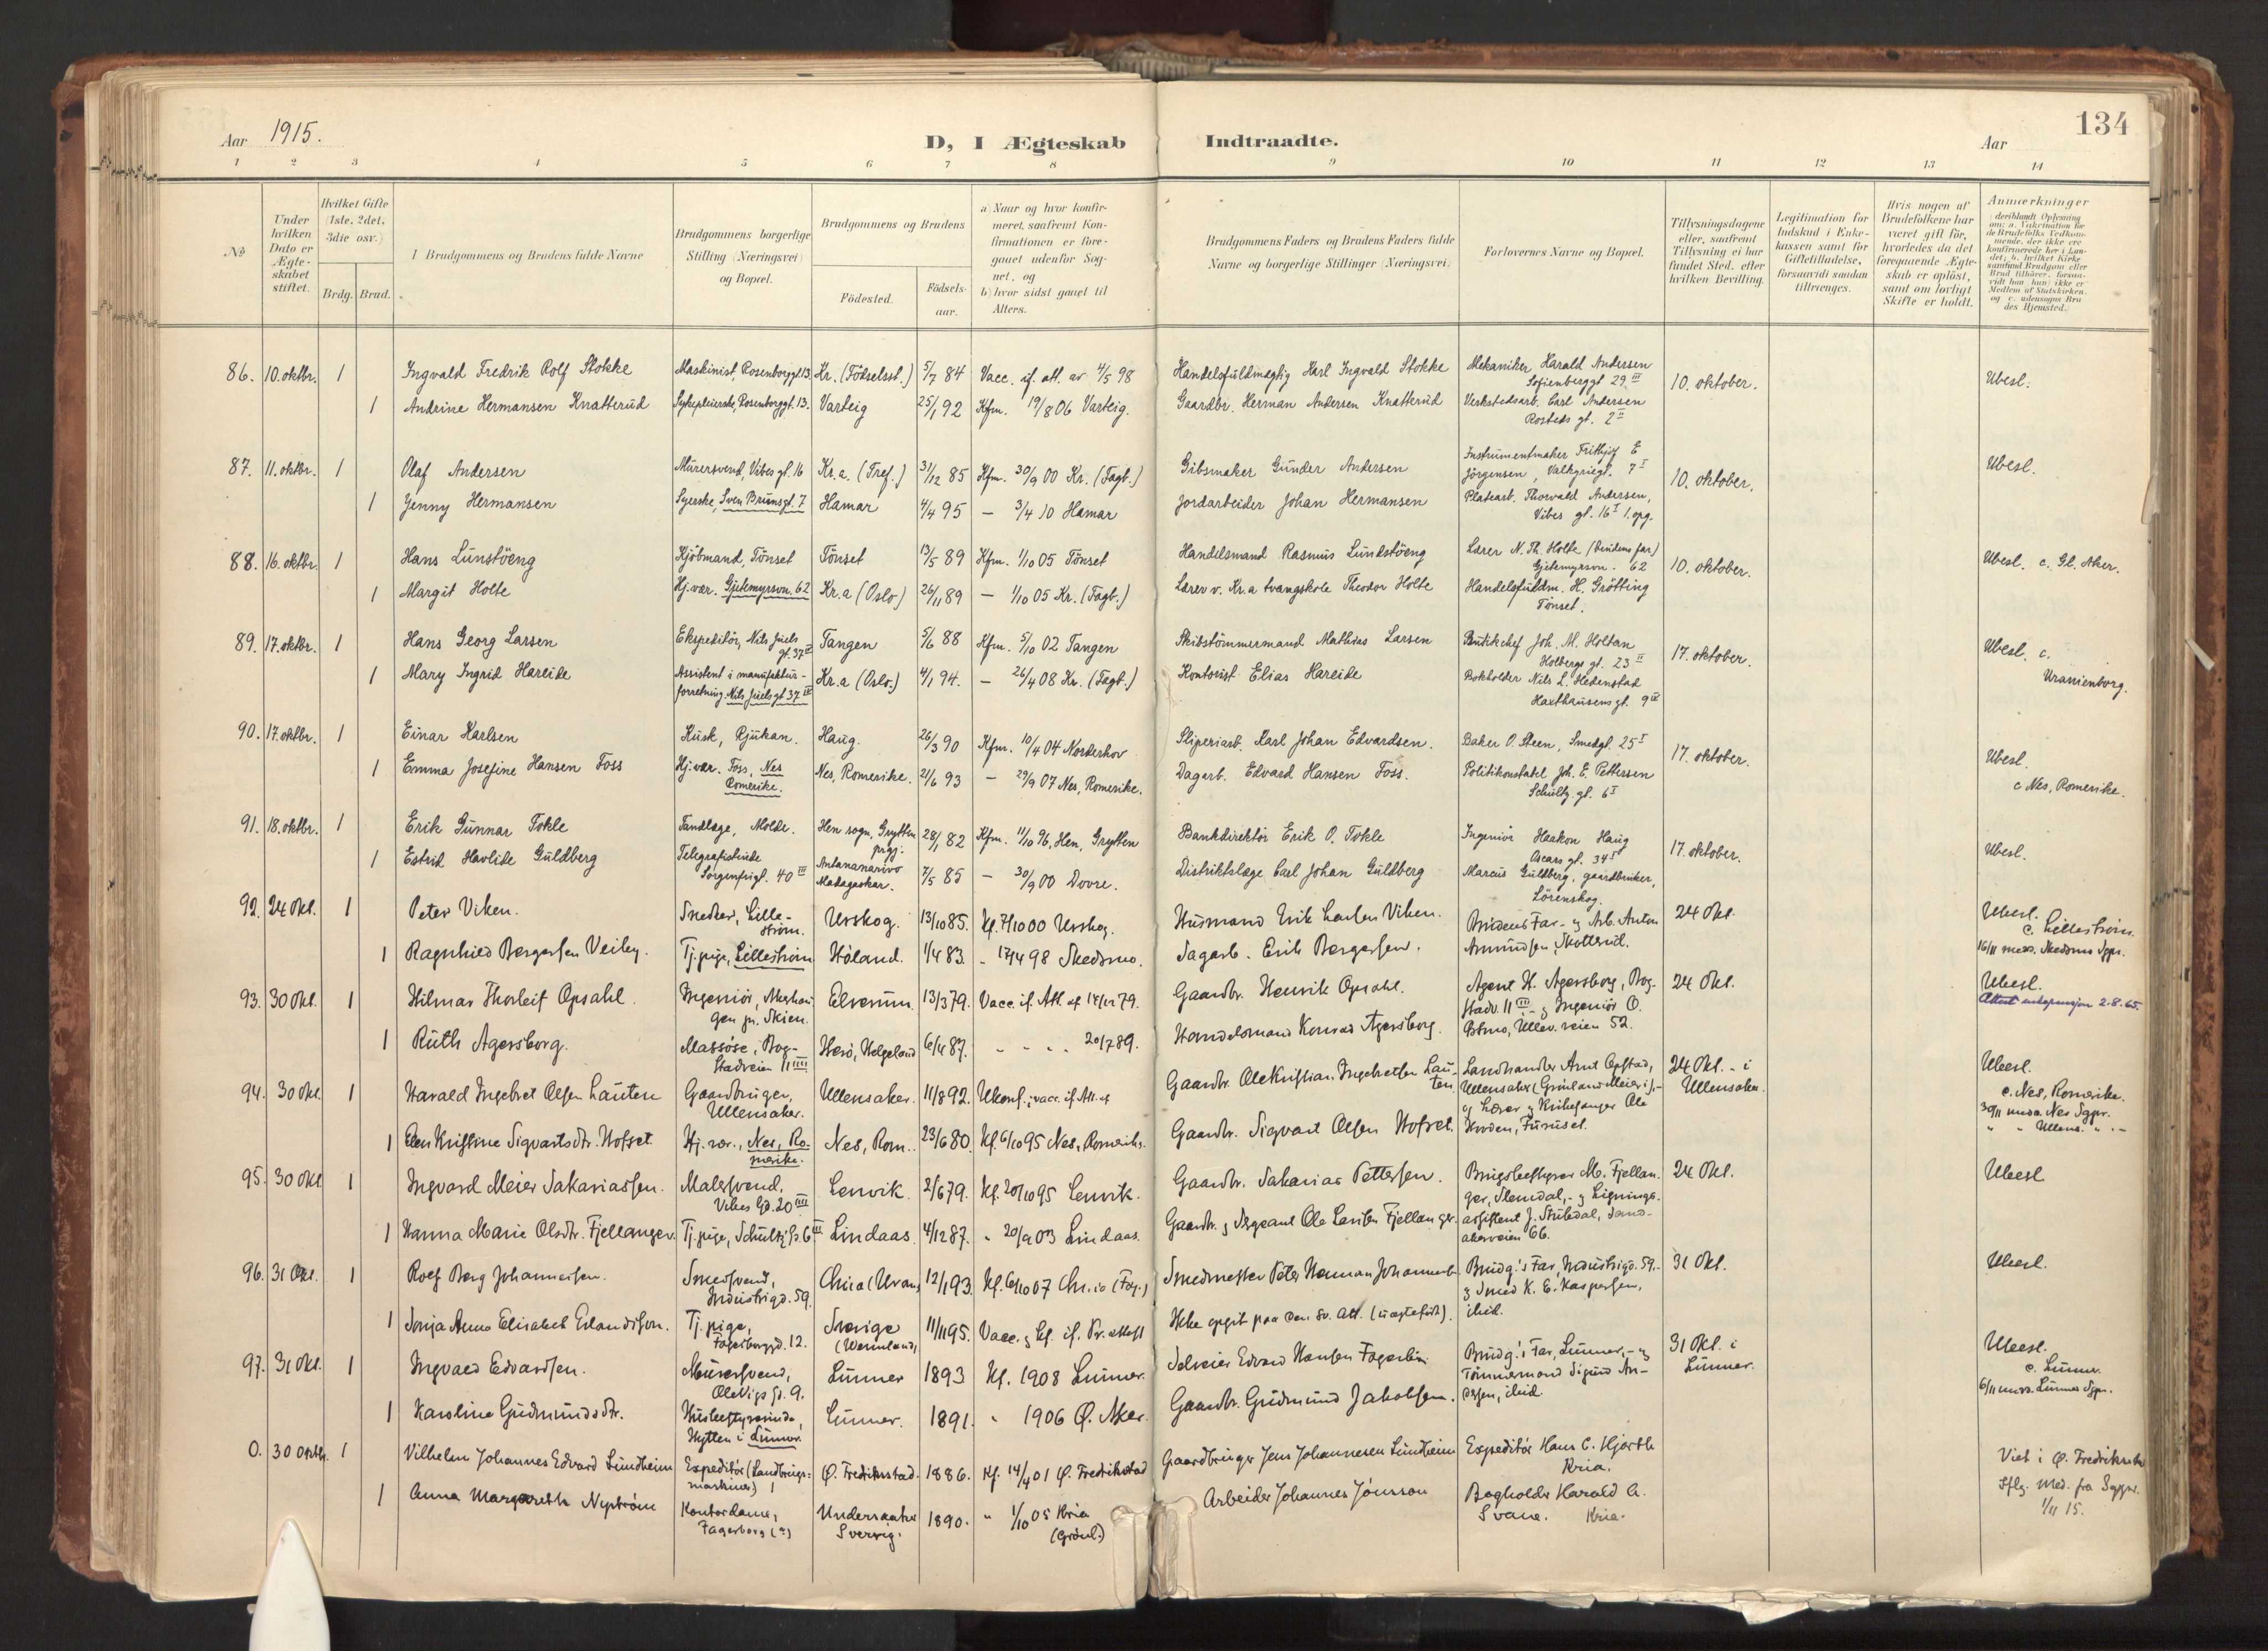 134
Aar 1915.
D, I Ægteskab Indtraadte.
Aar
1 2 3 4 5 6 7 8 9 10 11 12 13 14
No
Under hvilken Dato er Ægteskabet stiftet.
Hvilket Gifte (1ste, 2det, 3die osv.)
Brdg. Brud.
Brudgommens og Brudens fulde Navne
Brudgommens borgerlige Stilling (Næringsvei) og Bopæl.
Brudgommens og Brudens
Födested.
Födselsaar.
a) Naar og hvor konfirmeret, saafremt Konfirmationen er foregaaet udenfor Sognet, og
b) hvor sidst gaaet til Alters.
Brudgommens Faders og Brudens Faders fulde Navne og borgerlige Stillinger (Næringsvei)
Forlovernes Navne og Bopæl.
Tillysningsdagene eller, saafremt Tillysning ei har fundet Sted, efter hvilken Bevilling.
Legitimation for Indskud i Enkekassen samt for Giftetilladelse, forsaavidt saadan tiltrænges.
Hvis nogen af Brudefolkene har været gift för, hvorledes da det foregaaende Ægteskab er oplöst, samt om lovligt Skifte er holdt.
Anmærkninger
86. 10. oktbr. 1 Ingvald Fredrik Rolf Stokke Maskinist, Rosenborggt. 13. Kr. (Födselsst.) 5/7 84 Vacc. if. att. av 4/5 98 Handelsfuldmægtig Karl Ingvald Stokke Mekaniker Harald Andersen Sofienberggt 29 III 10. oktober. Ubesl.
1 Andrine Hermansen Knatterud Sykepleierske, Rosenborggt. 13. Varteig 25/1 92 Kfm. 19/8 06 Varteig. Gaardbr. Herman Andersen Knatterud Verkstedsarb. Carl Andersen Rosteds gt. 2 II
87. 11. oktbr. 1 Olaf Andersen Murersvend, Vibes gt. 16 Kr.a. (Tref.) 31/12 85 Kfm. 30/9 00 Kr. (Fagb.) Gibsmaker Gunder Andersen Instrumentmaker Frithjof E Jörgensen, Valkyriegt. 7 I 10. oktober. Ubesl.
1 Jenny Hermansen Syerske, Sven Brunsgt. 7 Hamar 4/4 95 — 3/4 10 Hamar Jordarbeider Johan Hermansen Platearb. Thorvald Andersen, Vibes gt. 16 I 1. opg.
88. 16. oktbr. 1 Hans Lunstöeng Kjöbmand, Tönset Tönset 13/5 89 Kfm. 1/10 05 Tönset Handelsmand Rasmus Lundstöeng Lærer N. Th. Holte (brudens far) Gjetemyrsvn. 62 10. oktober. Ubesl. c. Gl. Aker.
1 Margit Holte Hj.vær. Gjetemyrsvn. 62 Kr.a (Oslo) 26/11 89 — 1/10 05 Kr. (Fagb.) Lærer v. Kr.a tvangskole Theodor Holte Handelsfuldm. H. Grötting Tönset.
89. 17. oktbr. 1 Hans Georg Larsen Ekspeditör, Nils Juels gt. 37 II Tangen 5/6 88 Kfm. 5/10 02 Tangen Skibstömmermand Mathias Larsen Butikchef Joh. M. Holtan Holbergs gt. 23 II 17. oktober. Ubesl. c. Uranienborg.
1 Mary Ingrid Hareide Assistent i manufakturforretning Nils Juels gt 37 III Kr.a (Oslo.) 4/1 94. — 26/4 08 Kr. (Fagb.) Kontorist Elias Hareide Bokholder Nils L. Hedenstad Haxthausens gt. 9 IV
90. 17. oktbr. 1 Einar Karlsen Kusk, Rjukan. Haug. 26/3 90 Kfm. 10/4 04 Norderhov Sliperiarb. Karl Johan Edvardsen. Baker O. Steen, Smedgt. 25 I 17. oktober. Ubesl. c Nes, Romerike.
1 Emma Josefine Hansen Foss Hj.vær. Foss, Nes Romerike. Nes, Romerike. 21/6 93 — 29/9 07 Nes, Romerike. Dagarb. Edvard Hansen Foss. Politikonstabel Joh. E. Pettersen Schultz. gt. 6 I
91. 18. oktbr. 1 Erik Gunnar Tokle Tandlæge, Molde. Hen sogn, Grytten prgj. 28/1 82 Kfm. 11/10 96, Hen, Grytten Bankdirektör Erik O. Tokle Ingeniör Haakon Haug Oscars gt. 34 I 17. oktober. Ubesl.
1 Estrid Havlide Guldberg Telegrafistinde Sorgenfrigt. 40 III Antananarivo Madagaskar. 7/5 85 — 30/9 00 Dovre. Distriktslæge Carl Johan Guldberg Marcus Guldberg, gaardbruker, Lörenskog.
92. 24 Okt. 1 Peter Viken. Snedker, Lilleström. Urskog. 13/10 85. Kf. 7/10 00 Urskog. Husmand Erik Larsen Viken. Brudens Far - og Arb. Anton Amundsen, Skotterud. 24 Okt. Ubesl. c. Lilleström. 16/11 medd. Skedsmo Sgpr.
1 Ragnhild Bergersen Veiby. Tj.pige, Lilleström Höland. 1/4 83. - 17/4 98 Skedsmo. Sagarb. Erik Bergersen.
93. 30 Okt. 1 Hilmar Thorleif Opsahl. Ingeniör, Menstad pr. Skien. Elverum. 13/3 79. Vacc. if. Att. af 14/12 79. Gaardbr. Henrik Opsahl. Agent H. Agersborg, Bogstadv. 11 III - og Ingeniör O. Östmo, Ullev. veien 52. 24 Okt. Ubesl. 2-8-65.
1 Ruth Agersborg. Massöse, Bogstadveien 11 III Herö, Helgeland 6/4 87. - - - - 20/7 89. Handelsmand Konrad Agersborg.
94. 30 Okt 1 Harald Ingebret Olsen Lauten Gaardbruger, Ullensaker. Ullensaker. 11/8 92. Ukonf.; vacc. if. Att. af Gaardbr. Ole Kristian Ingebretsen Lauten Landhandler Arnt Opstad, Ullensaker - og Lærer og Kirkesanger Ole Hvoden, Furuset. 24 Okt. - i Ullensaker. Ubesl. c. Nes, Romerike. 30/11 medd. Nes Sgpr. " " Ullens. " . -
1 Ellen Kristine Sigvartsdtr. Hofset. Hj. vær., Nes, Romerike. Nes, Rom. 23/6 80. Kf. 6/10 95 Nes, Romerike. Gaardbr. Sigvart Olsen Hofset.
95. 30 Okt 1 Ingvard Meier Sakariassen. Malersvend, Vibes Gd. 20 III Lenvik. 2/6 79. Kf. 20/10 95 Lenvik. Gaardbr. Sakarias Pettersen. Brugsbestyrer M. Fjellanger, Slemdal, - og Ligningsassistent J. Stubdal, Sandakerveien 66. 24 Okt. Ubesl
1 Hanna Marie Olsdtr. Fjellanger. Tj.pige, Schultz Gd. 6 III Lindaas. 4/12 87. " 20/9 03 Lindaas. Gaardbr. og Sergeant Ole Larsen Fjellanger.
96. 31 Okt. 1 Rolf Berg Johannesen. Smedsvend, Industrigd. 59. Chria (Uran.) 12/1 93. Kf. 6/10 07 Chr.ia (Fag.) Smedmester Peter Herman Johannesen Brudg.'s Far, Industrigd. 59. - og Smed K. E. Kaspersen, ibid. 31 Okt. Ubesl.
1 Sonja Anna Elisabet Erlandsson. Tj.pige, Fagerborggd. 12. Sverige (Wermland) 11/11 95. Vacc. og kf. if. Pr.attest Ikke opgit paa den sv. Att. (uægtefödt).
97. 31 Okt. 1 Ingvald Edvardsen. Murersvend, Ole Vigs Gd. 9. Lunner 1893. Kf. 1908 Lunner. Selveier Edvard Hansen Fagerlien Brudg.'s Far, Lunner, - og Tömmermand Sigurd Andersen, ibid. 31 Okt. i Lunner. Ubesl. c. Lunner. 6/11 medd. Lunner Sgpr.
1 Karoline Gudmundsdtr. Husbestyrerinde, Hytten i Lunner. Lunner. 1891. " 1906 Ø. Aker. Gaardbr. Gudmund Jakobsen.
0. 30 Oktbr. 1 Vilhelm Johannes Edvard Lundheim Expeditör (Landbrugsmaskiner) Ø. Fredrikstad. 1886. Kf. 14/4 01 Ø. Fredrikstad Gaardbruger Jens Johannesen Lundheim Expeditör Hans C. Hjorth Kria. Viet i Ø. Fredrikstad Iflg. Med. fra Sgpr. 1/11 15.
1 Anna Margareth Nyström Kontordame, Fagerborg Undersaaker Sverrig. 1890. " 1/10 05 Kria (Grönl.) Arbeider Johannes Jönsson Bogholder Harald A. Svane. Kria.